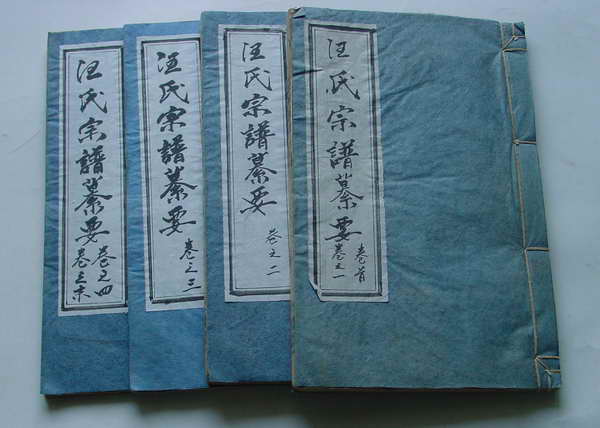 汪氏宗譜纂要
卷首
卷之一
汪氏宗譜纂要
卷之二
汪氏宗譜纂要
卷之三
汪氏宗譜纂要
卷之四
卷之末